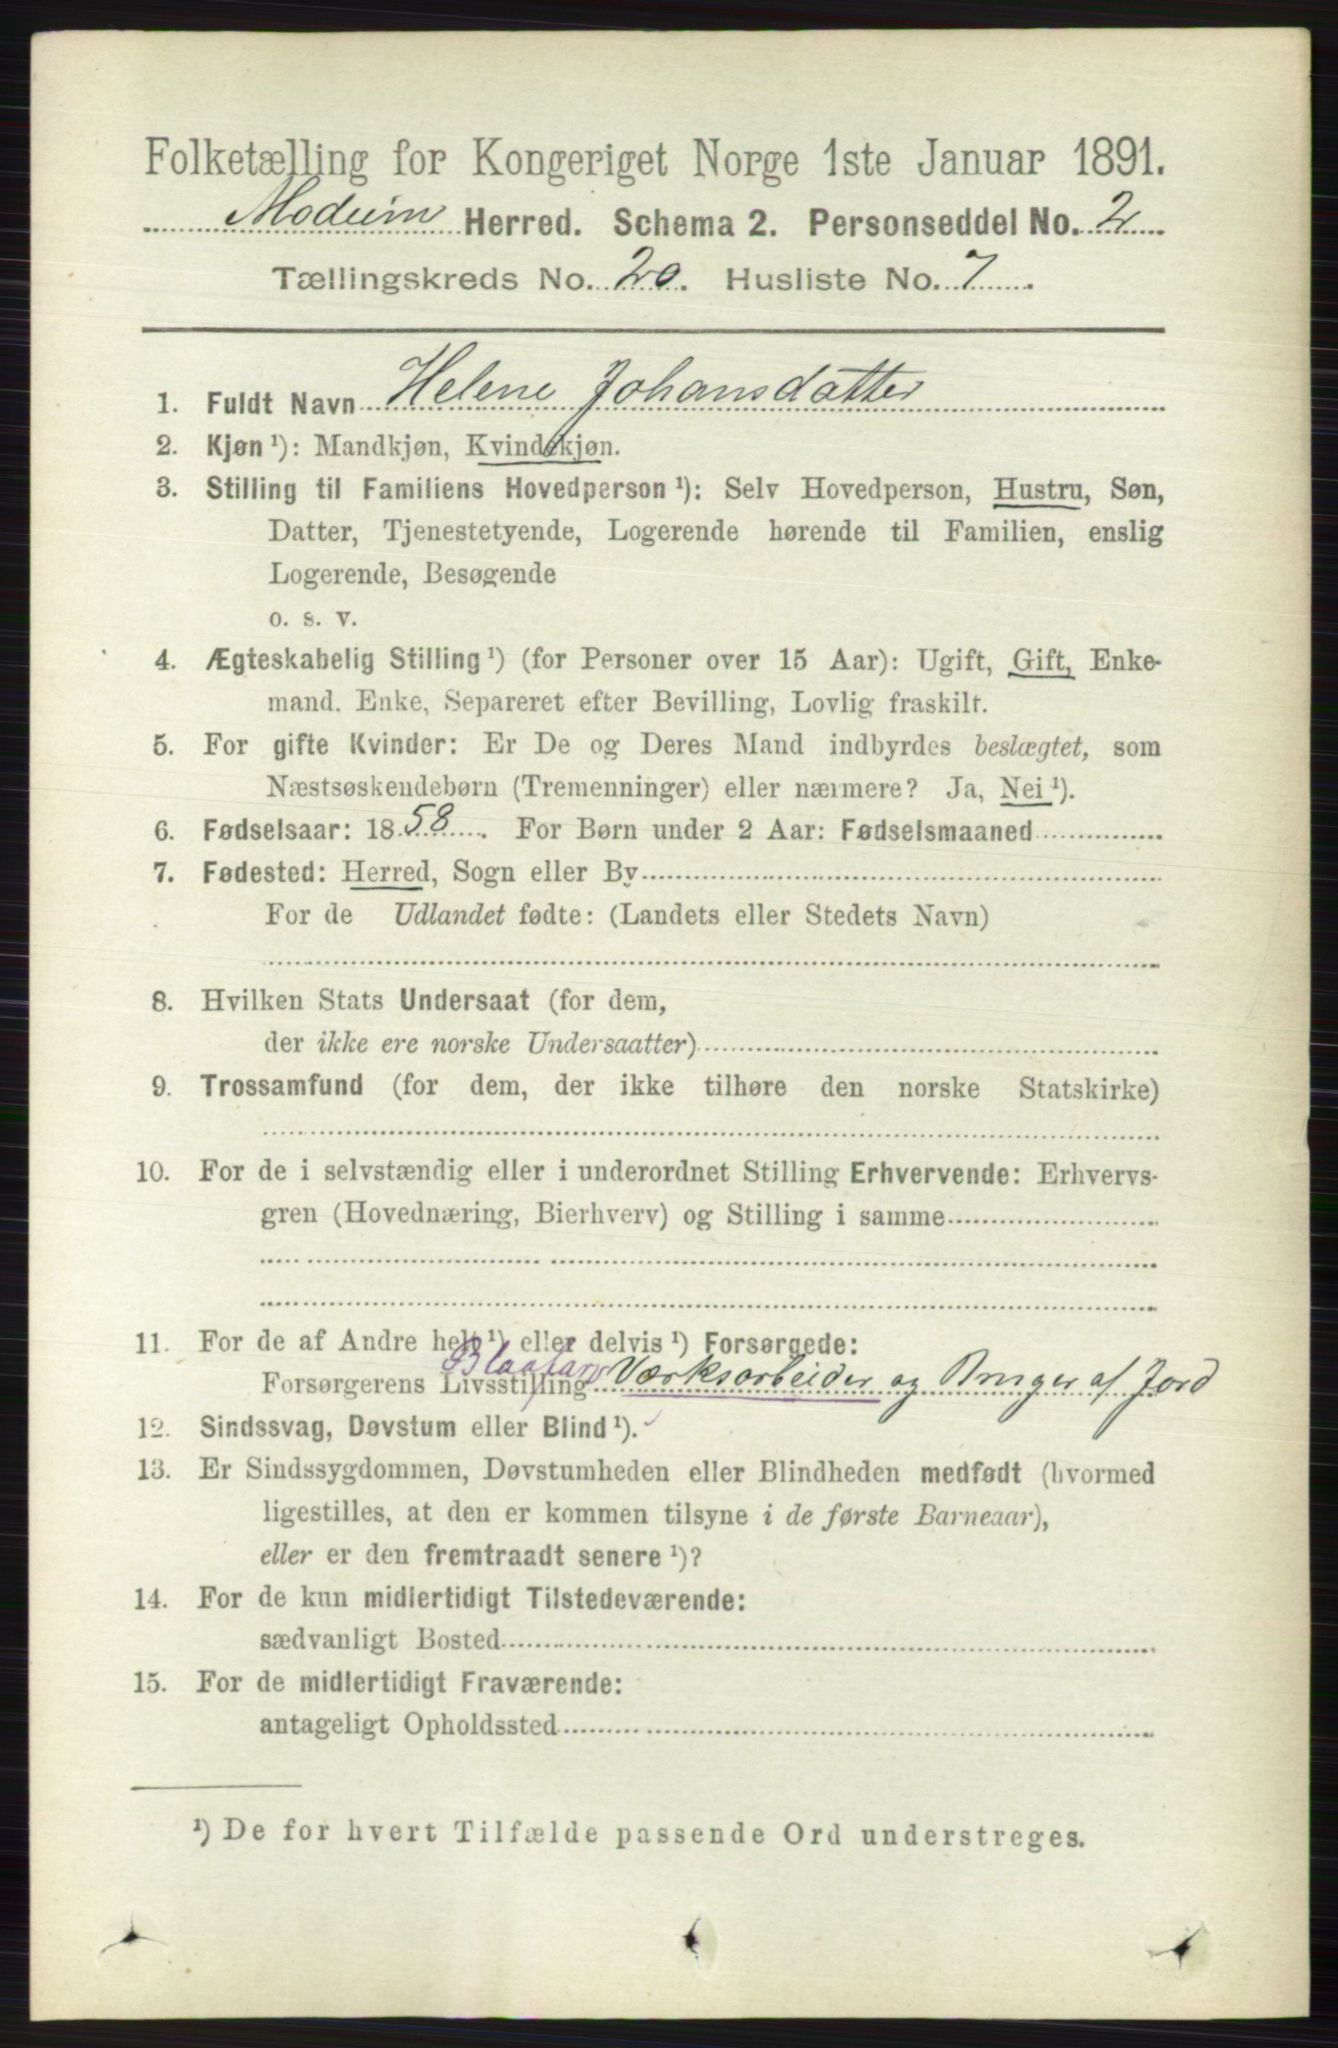 Folketælling for Kongeriget Norge 1ste Januar 1891.
Modum Herred. Schema 2. Personseddel No. 2
Tællingskreds No. 20. Husliste No. 7.
1. Fuldt Navn Helene Johansdatter
2. Kjøn ¹): Mandkjøn, Kvindekjøn.
3. Stilling til Familiens Hovedperson ¹): Selv Hovedperson, Hustru, Søn,
Datter, Tjenestetyende, Logerende hørende til Familien, enslig
Logerende, Besøgende
o. s. v.
4. Ægteskabelig Stilling ¹) (for Personer over 15 Aar): Ugift, Gift, Enke-
mand. Enke, Separeret efter Bevilling, Lovlig fraskilt.
5. For gifte Kvinder: Er De og Deres Mand indbyrdes beslægtet, som
Næstsøskendebørn (Tremenninger) eller nærmere? Ja, Nei ¹).
6. Fødselsaar: 1858. For Børn under 2 Aar: Fødselsmaaned
7. Fødested: Herred, Sogn eller By
For de Udlandet fødte: (Landets eller Stedets Navn)
8. Hvilken Stats Undersaat (for dem,
der ikke ere norske Undersaatter)
9. Trossamfund (for dem, der ikke tilhøre den norske Statskirke)
10. For de i selvstændig eller i underordnet Stilling Erhvervende: Erhvervs-
gren (Hovednæring, Bierhverv) og Stilling i samme
11. For de af Andre helt ¹) eller delvis ¹) Forsørgede:
Blaafarve
Forsørgerens Livsstilling Værksarbeider og Bruger af Jord
12. Sindssvag, Døvstum eller Blind ¹).
13. Er Sindssygdommen, Døvstumheden eller Blindheden medfødt (hvormed
ligestilles, at den er kommen tilsyne i de første Barneaar),
eller er den fremtraadt senere ¹)?
14. For de kun midlertidigt Tilstedeværende:
sædvanligt Bosted
15. For de midlertidigt Fraværende:
antageligt Opholdssted
¹) De for hvert Tilfælde passende Ord understreges.